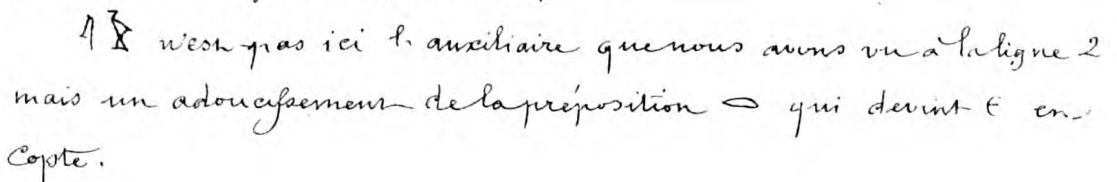 𓇋𓅱 n'est pas ici l'auxiliaire que nous avons vu à la ligne 2
mais un adoucissement de la préposition 𓂋 qui devint ⲉ en
Copte.